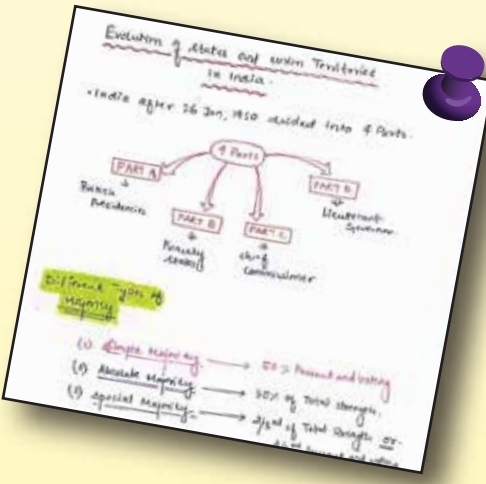 Evolution of States and union Territories
in India.
• India after 26 Jan, 1950 divided into 4 Parts.
4 Parts
PART A
British Presidencies
PART B
Princely States
PART C
Chief Commissioner
PART D
Lieutenant Governor
Different Types of
Majority
(1) Simple Majority → 50% Present and voting
(2) Absolute Majority → 50% of Total strength.
(3) Special Majority → 2/3rd of Total Strength or
present and voting